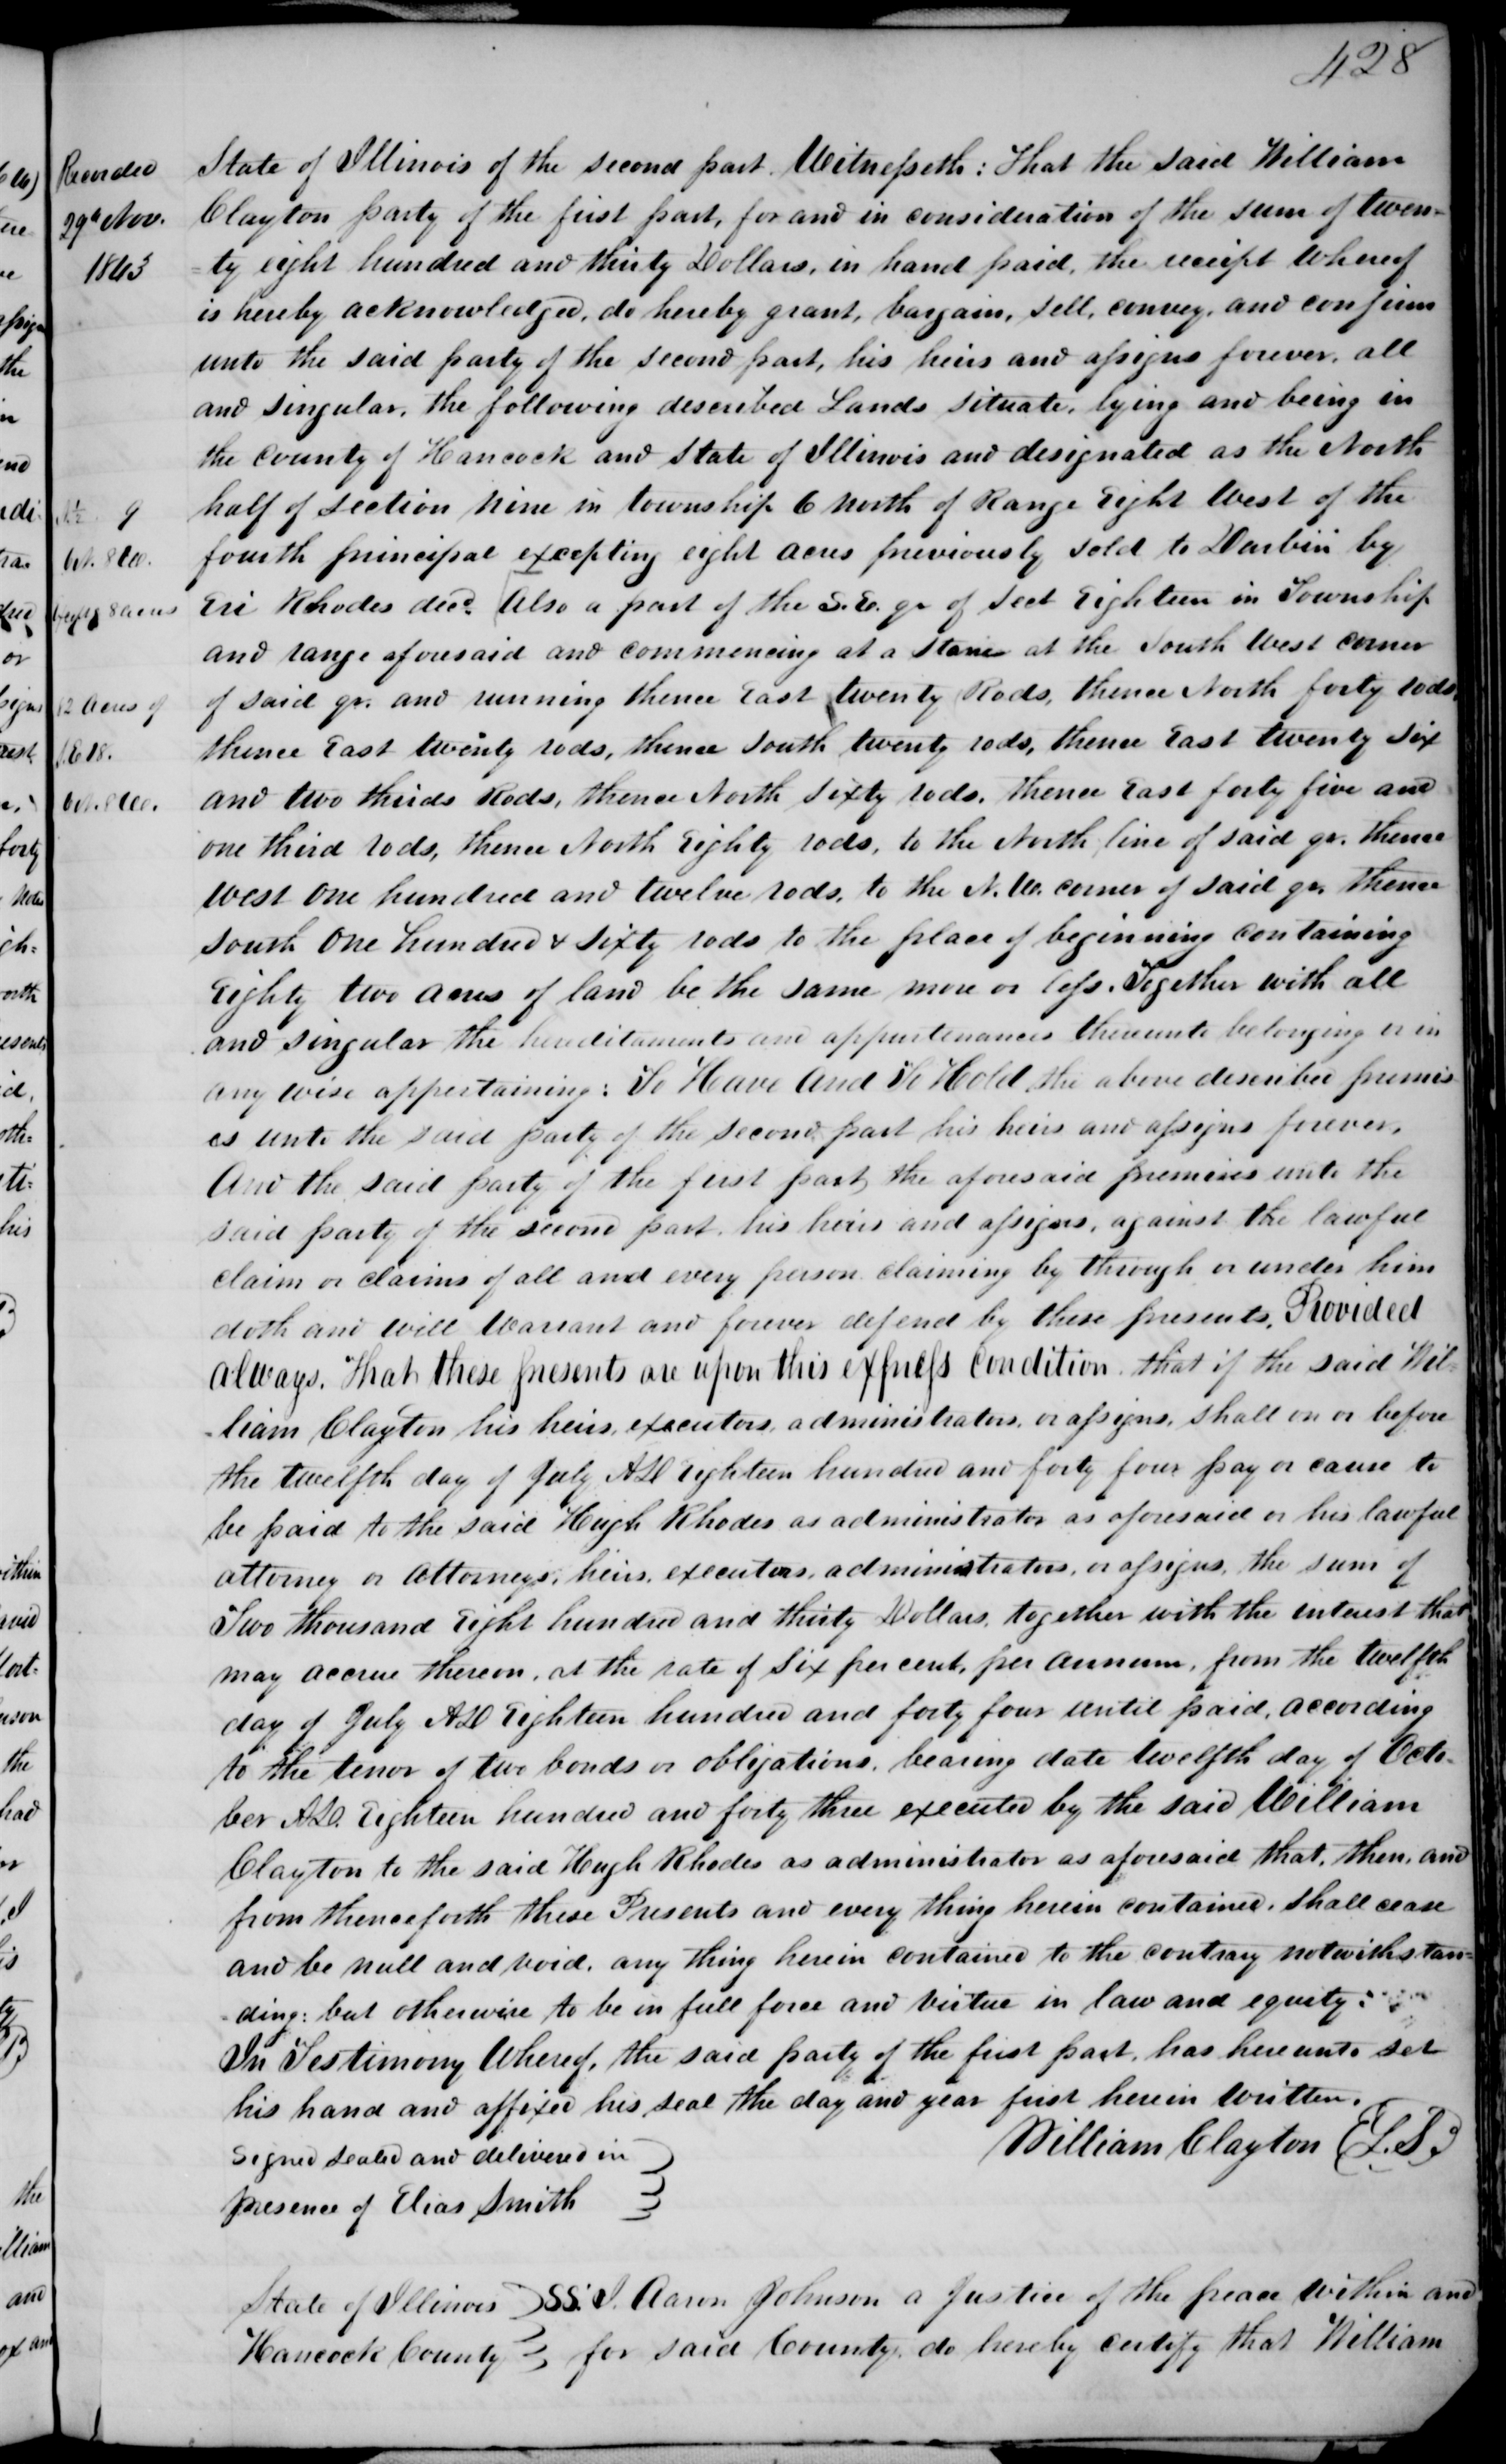 428
Recorded
29th Nov.
1843
N½ 9
6N. 8W.
exceptg 8 acres
82 Acres of
S.E 18.
6N. 8W.
State of Illinois of the second part. Witnesseth: That the said William
Clayton party of the first part, for and in consideration of the sum of twen=
=ty eight hundred and thirty Dollars, in hand paid, the receipt whereof
is hereby acknowledged, do hereby grant, bargain, sell, convey, and confirm
unto the said party of the second part, his heirs and assigns forever, all
and singular, the following described Lands situate, lying and being in
the county of Hancock and State of Illinois and designated as the North
half of section Nine in township 6 North of Range Eight West of the
fourth principal excepting eight acres previously sold to Durbin by
Eri Rhodes decd. Also a part of the S.E. qr of Sect Eighteen in Township
and range aforesaid and commencing at a Stone at the South West corner
of said qr. and running thence East twenty Rods, thence North forty rods,
thence East twenty rods, thence South twenty rods, thence East twenty six
and two thirds Rods, thence North sixty rods, thence East forty five and
one third rods, thence North Eighty rods, to the North line of said qr. thence
West One hundred and twelve rods, to the N.W. corner of said qr. thence
South One hundred & sixty rods to the place of beginning containing
Eighty two acres of land be the same more or less. Together with all
and singular the hereditaments and appurtenances thereunto belonging or in
any wise appertaining: To Have And To Hold the above described premis-
es unto the said party of the second part his heirs and assigns forever.
And the said party of the first part the aforesaid premises unto the
said party of the second part, his heirs and assigns, against the lawful
claim or claims of all and every person claiming by through or under him
doth and will Warrant and forever defend by these presents. Provided
always. That these presents are upon this express condition, that if the said Wil=
-liam Clayton his heirs, executors, administrators, or assigns, shall on or before
the twelfth day of July AD Eighteen hundred and forty four pay or cause to
be paid to the said Hugh Rhodes as administrator as aforesaid or his lawful
attorney or Attorneys, heirs, executors, administrators, or assigns, the sum of
Two thousand Eight hundred and thirty Dollars, together with the interest that
may accrue thereon, at the rate of Six per cent, per annum, from the twelfth
day of July AD Eighteen hundred and forty four until paid, according
to the tenor of two bonds or obligations, bearing date twelfth day of Octo-
ber AD. Eighteen hundred and forty three executed by the said William
Clayton to the said Hugh Rhodes as administrator as aforesaid that, then, and
from thenceforth these Presents and every thing herein contained, shall cease
and be null and void, any thing herein contained to the contrary notwithstan=
-ding: but otherwise to be in full force and virtue in law and equity:
In Testimony Whereof, the said party of the first part, has hereunto set
his hand and affixed his seal the day and year first herein written.
William Clayton (L.S.)
Signed sealed and delivered in
presence of Elias Smith
State of Illinois } SS. I. Aaron Johnson a Justice of the peace within and
Hancock County } for said County, do hereby certify that William